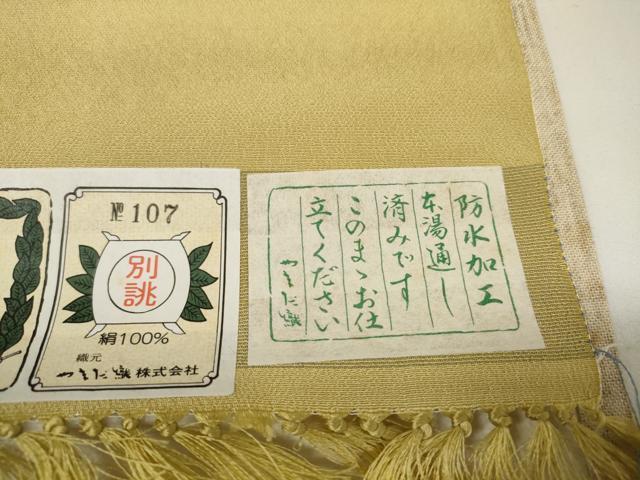 № 107
別誂
絹100%
織元
やまだ織株式会社
防水加工
本湯通し
済みです
このまゝお仕
立てください
やまだ織